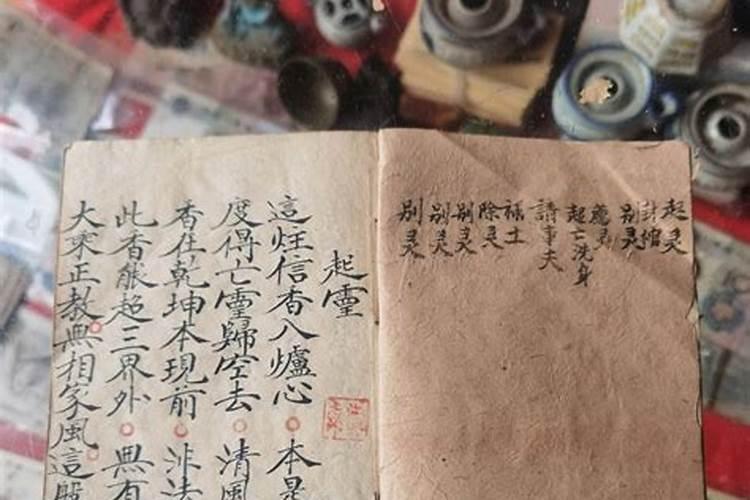 起灵
封棺
别灵
起亡洗身
請事夫
禄土
除灵
别灵
别灵
别灵
起靈
這炷信香入爐心 本是
度得亡靈歸空去 清風
香在乾坤本現前 非法
此香能超三界外 無有
大乘正教無相家風這